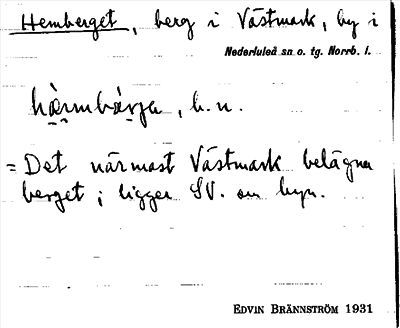 Hemberget, berg i Västmark, by i
Nederluleå sn o. tg. Norrb. l.
b.n.
= Det närmast Västmark belägna
berget; ligger SV. om byn.
EDVIN BRÄNNSTRÖM 1931